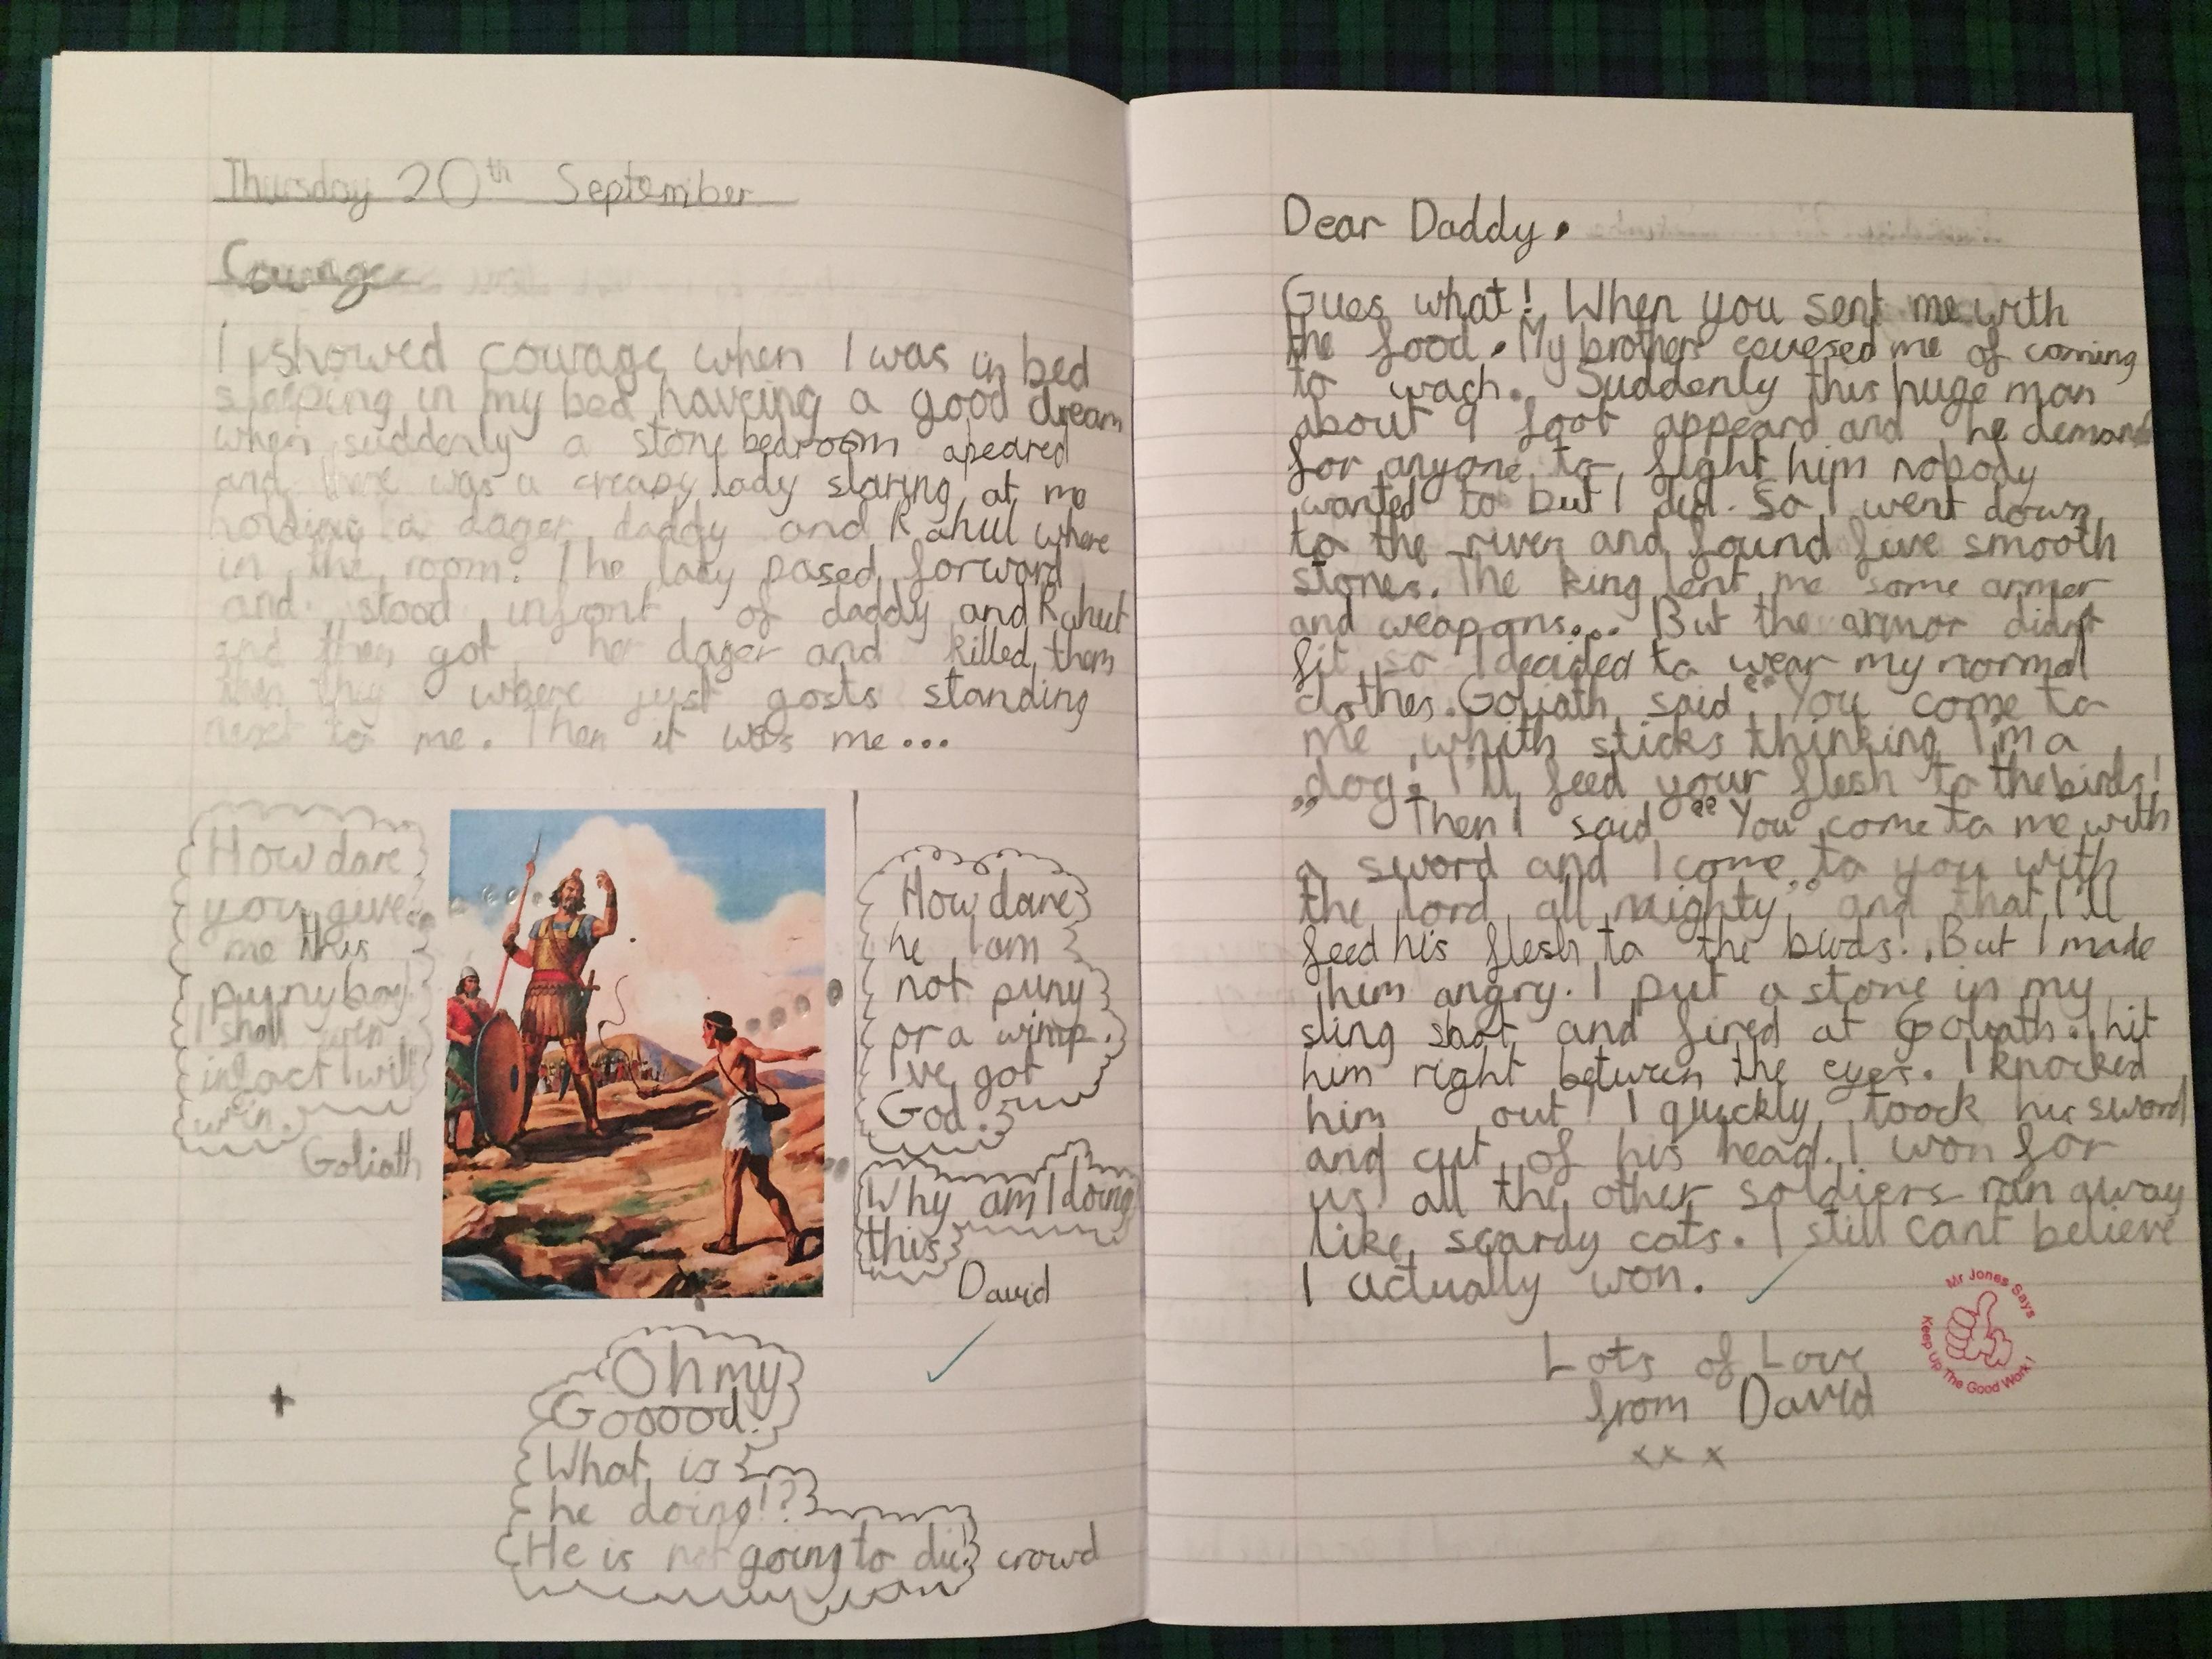 Thursday 20th September
Courage
I showed courage when I was in bed
sleeping in my bed haveing a good dream
when suddenly a stone bedroom apeared
and there was a creapy lady staring at me
holding a dager daddy and Rahul where
in the room. The lady pased forward
and stood infront of daddy and Rahul
and then got her dager and killed them
then they where just gosts standing
next to me. Then it was me...
How dare
you give
me this
puny boy!
I shall win
infact I will
win.
Goliath
How dare
he I am
not puny
or a wimp.
I've got
God.
Why am I doing
this
David
Oh my
Gooood!
What is
he doing!?
He is not going to die!
crowd
Dear Daddy.
Gues what! When you sent me with
the food. My brothers coused me of coming
to wach. Suddenly this huge man
about 9 foot appeard and he demand
for anyone to fight him nobody
wanted to but I did. So I went down
to the river and found five smooth
stones. The king lent me some armer
and weapons... But the armor didn't
fit so I decided to wear my normal
clothes. Goliath said "You come to
me whith sticks thinking I'm a
dog. I'll feed your flesh to the birds!
" Then I said "You come to me with
a sword and I come to you with
the lord all mighty" and that I'll
feed his flesh to the birds! But I made
him angry. I put a stone in my
sling shot and fired at Goliath. I hit
him right between the eyes. I knocked
him out! I quickly toock his sword
and cut of his head. I won for
us all the other soldiers ran away
like scardy cats. I still cant believe
I actually won.
Mr Jones Says
Keep Up The Good Work!
Lots of Love
from David
x x x